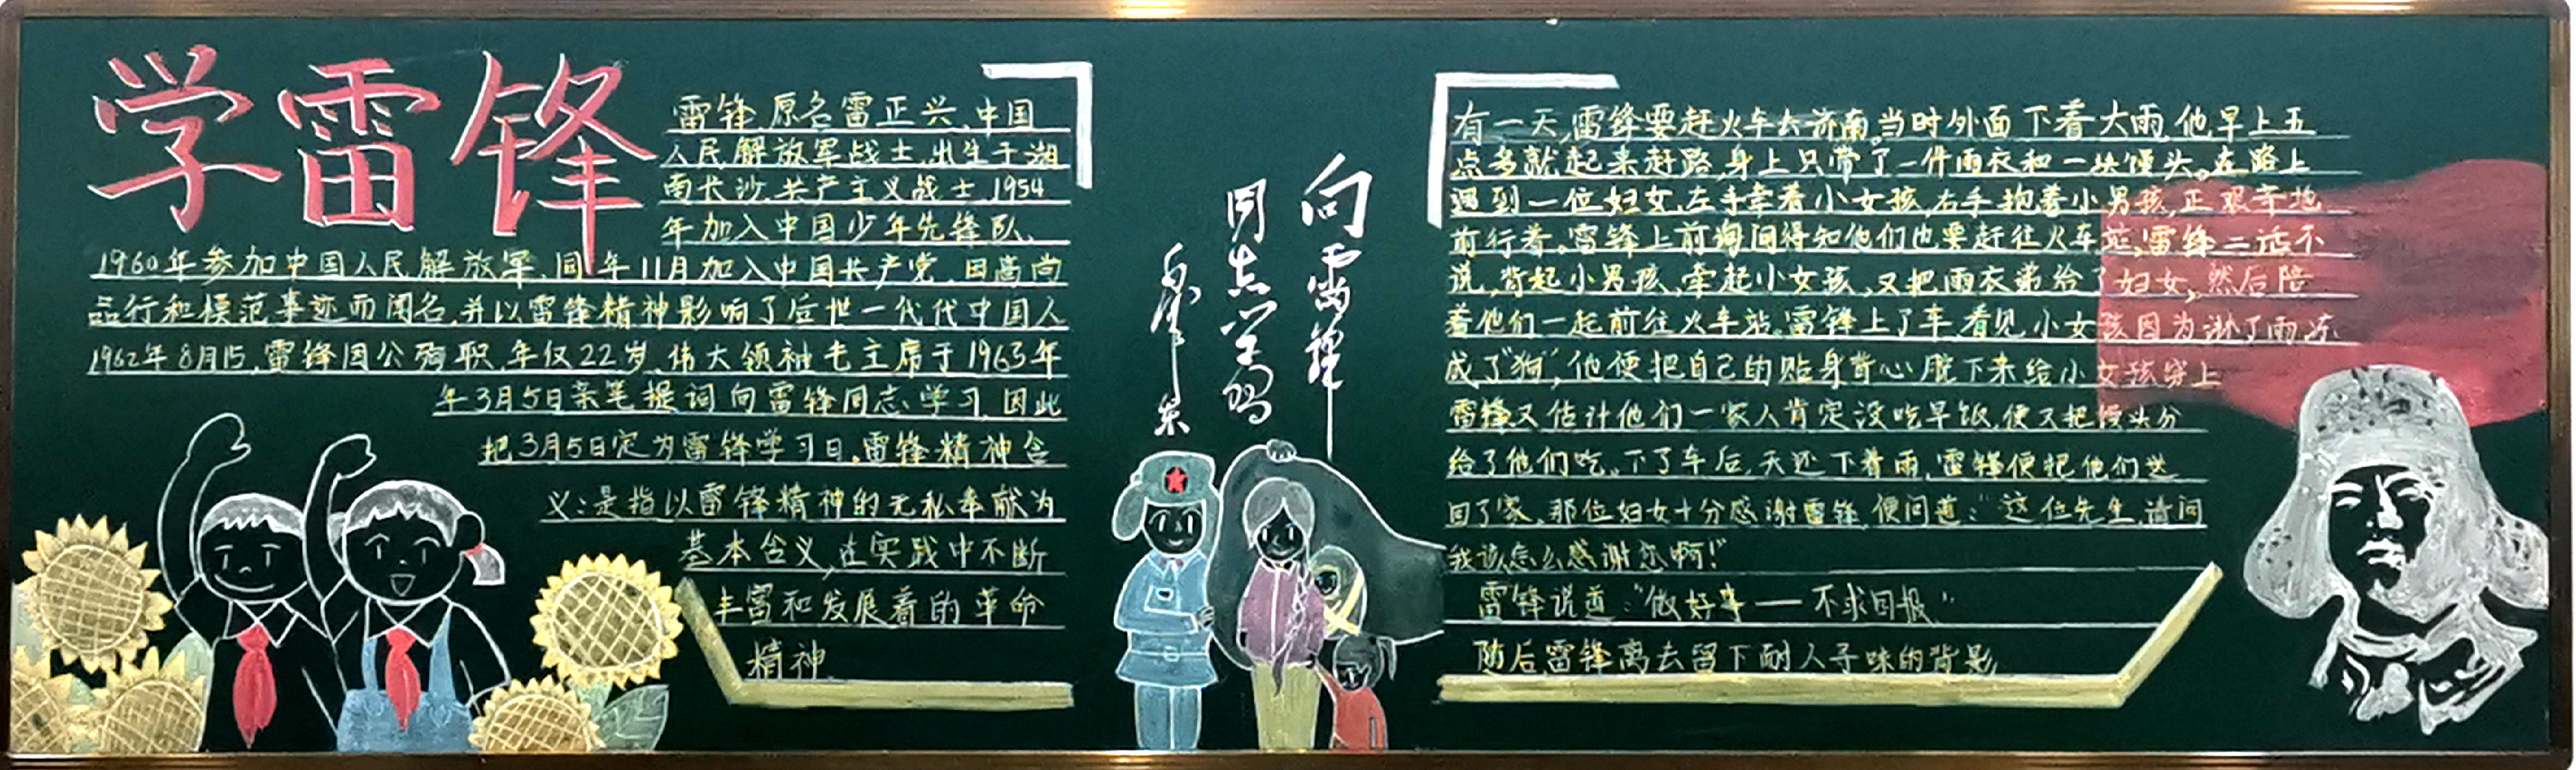 学雷锋
雷锋,原名雷正兴,中国
人民解放军战士,出生于湖
南长沙,共产主义战士,1954
年加入中国少年先锋队,
1960年参加中国人民解放军,同年11月加入中国共产党,因高尚
品行和模范事迹而闻名,并以雷锋精神影响了后世一代代中国人
1962年8月15,雷锋因公殉职,年仅22岁,伟大领袖毛主席于1963年
年3月5日亲笔提词向雷锋同志学习,因此
把3月5日定为雷锋学习日。雷锋精神含
义:是指以雷锋精神的无私奉献为
基本含义,在实践中不断
丰富和发展着的革命
精神.
向雷锋
同志学习
毛泽东
有一天,雷锋要赶火车去济南。当时外面下着大雨,他早上五
点多就起来赶路,身上只带了一件雨衣和一块馒头。在路上
遇到一位妇女,左手牵着小女孩,右手抱着小男孩,正艰辛地
前行着。雷锋上前询问得知他们也要赶往火车站,雷锋二话不
说,背起小男孩,牵起小女孩,又把雨衣递给了妇女,然后陪
着他们一起前往火车站。雷锋上了车,看见小女孩因为淋了雨冻
成了"狗",他便把自己的贴身背心脱下来给小女孩穿上
雷锋又估计他们一家人肯定没吃早饭,便又把馒头分
给了他们吃。下了车后,天还下着雨,雷锋便把他们送
回了家,那位妇女十分感谢雷锋,便问道:"这位先生,请问
我该怎么感谢您啊!"
雷锋说道:"做好事——不求回报"
随后,雷锋离去留下耐人寻味的背影